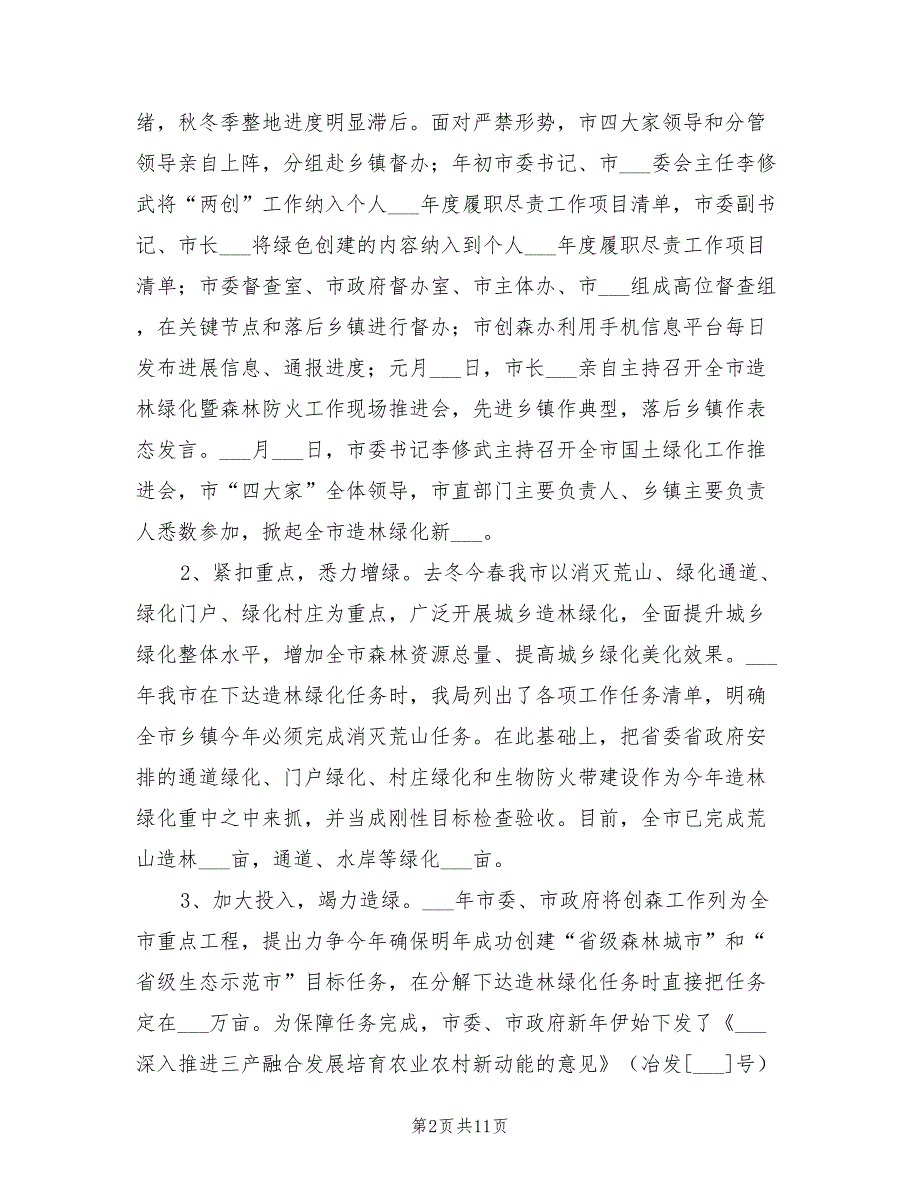 绪，秋冬季整地进度明显滞后。面对严禁形势，市四大家领导和分管
领导亲自上阵，分组赴乡镇督办；年初市委书记、市___委会主任李修
武将“两创”工作纳入个人___年度履职尽责工作项目清单，市委副书
记、市长___将绿色创建的内容纳入到个人___年度履职尽责工作项目
清单；市委督查室、市政府督办室、市主体办、市___组成高位督查组
，在关键节点和落后乡镇进行督办；市创森办利用手机信息平台每日
发布进展信息、通报进度；元月___日，市长___亲自主持召开全市造
林绿化暨森林防火工作现场推进会，先进乡镇作典型，落后乡镇作表
态发言。___月___日，市委书记李修武主持召开全市国土绿化工作推
进会，市“四大家”全体领导，市直部门主要负责人、乡镇主要负责
人悉数参加，掀起全市造林绿化新___。
2、紧扣重点，悉力增绿。去冬今春我市以消灭荒山、绿化通道、
绿化门户、绿化村庄为重点，广泛开展城乡造林绿化，全面提升城乡
绿化整体水平，增加全市森林资源总量、提高城乡绿化美化效果。___
年我市在下达造林绿化任务时，我局列出了各项工作任务清单，明确
全市乡镇今年必须完成消灭荒山任务。在此基础上，把省委省政府安
排的通道绿化、门户绿化、村庄绿化和生物防火带建设作为今年造林
绿化重中之中来抓，并当成刚性目标检查验收。目前，全市已完成荒
山造林___亩，通道、水岸等绿化___亩。
3、加大投入，竭力造绿。___年市委、市政府将创森工作列为全
市重点工程，提出力争今年确保明年成功创建“省级森林城市”和“
省级生态示范市”目标任务，在分解下达造林绿化任务时直接把任务
定在___万亩。为保障任务完成，市委、市政府新年伊始下发了《___
深入推进三产融合发展培育农业农村新动能的意见》（冶发[___]号）
第2页共11页